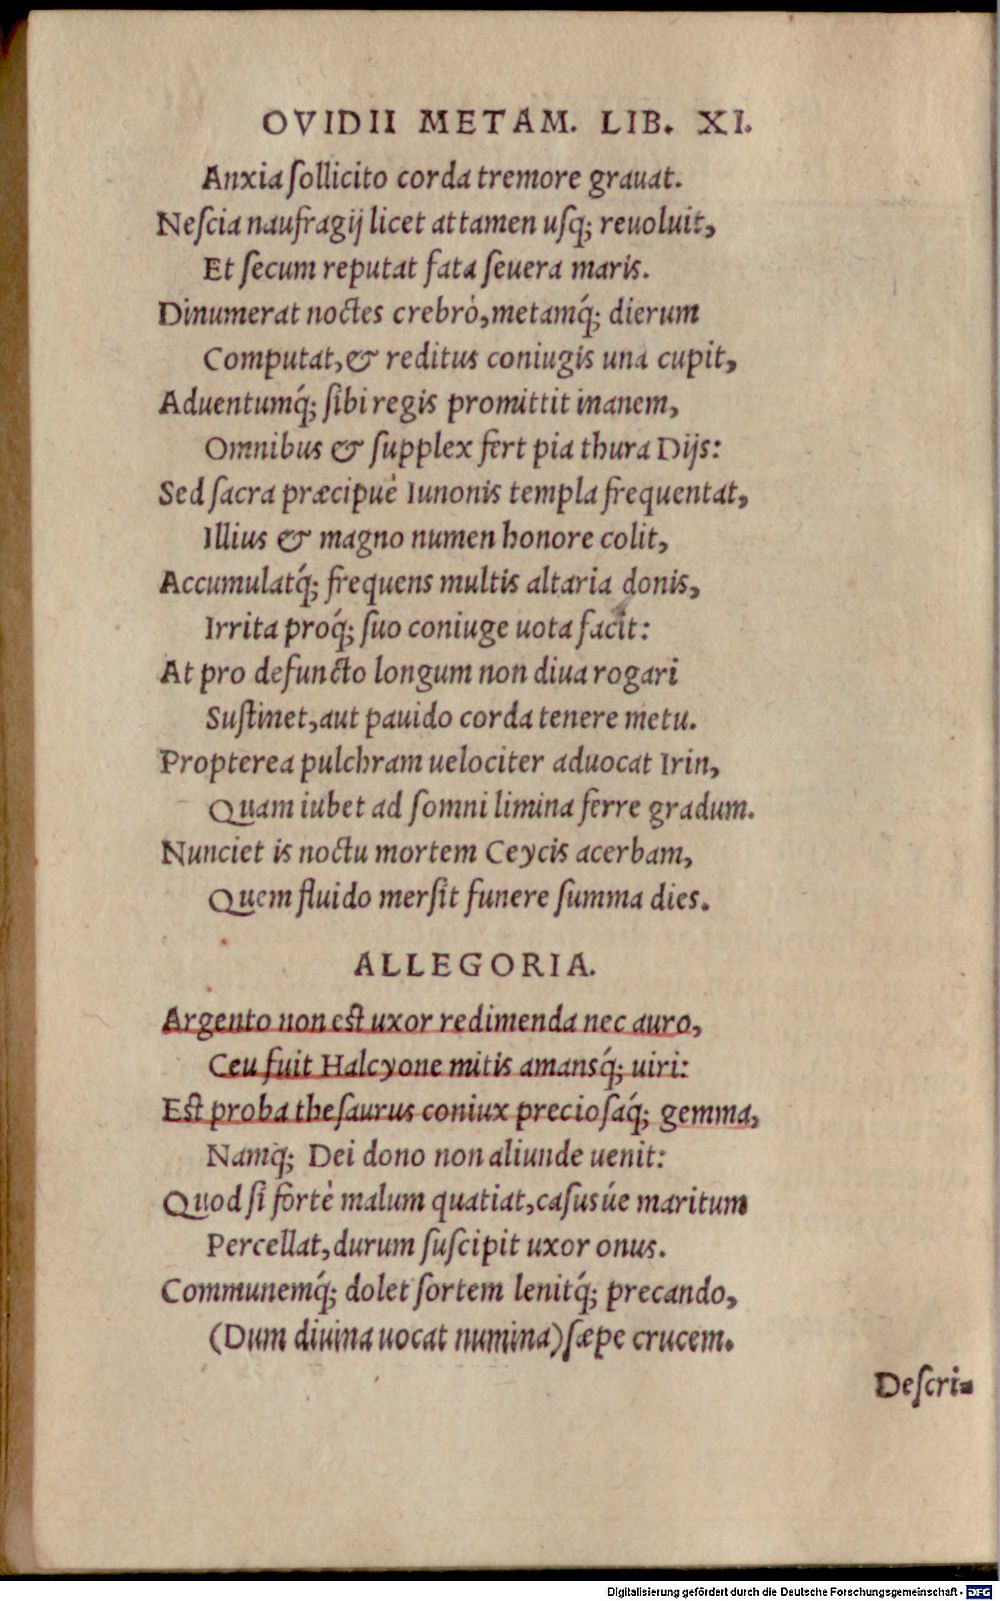 OVIDII METAM. LIB. XI.
Anxia ſollicito corda tremore grauat.
Neſcia naufragij licet attamen uſq; reuoluit,
Et ſecum reputat fata ſeuera maris.
Dinumerat noctes crebrò, metamq́; dierum
Computat, & reditus coniugis una cupit,
Aduentumq́; ſibi regis promittit inanem,
Omnibus & ſupplex fert pia thura Dijs:
Sed ſacra præcipuè Iunonis templa frequentat,
Illius & magno numen honore colit,
Accumulatq́; frequens multis altaria donis,
Irrita proq́; ſuo coniuge uota facit:
At pro defuncto longum non diua rogari
Suſtinet, aut pauido corda tenere metu.
Propterea pulchram uelociter aduocat Irin,
Quam iubet ad ſomni limina ferre gradum.
Nunciet is noctu mortem Ceycis acerbam,
Quem fluido merſit funere ſumma dies.
ALLEGORIA.
Argento non eſt uxor redimenda nec auro,
Ceu fuit Halcyone mitis amansq́; uiri:
Eſt proba theſaurus coniux precioſaq́; gemma,
Namq́; Dei dono non aliunde uenit:
Quod ſi fortè malum quatiat, caſusúe maritum
Percellat, durum ſuſcipit uxor onus.
Communemq́; dolet ſortem lenitq́; precando,
(Dum diuina uocat numina) ſæpe crucem.
Deſcri-
Digitalisierung gefördert durch die Deutsche Forschungsgemeinschaft - DFG